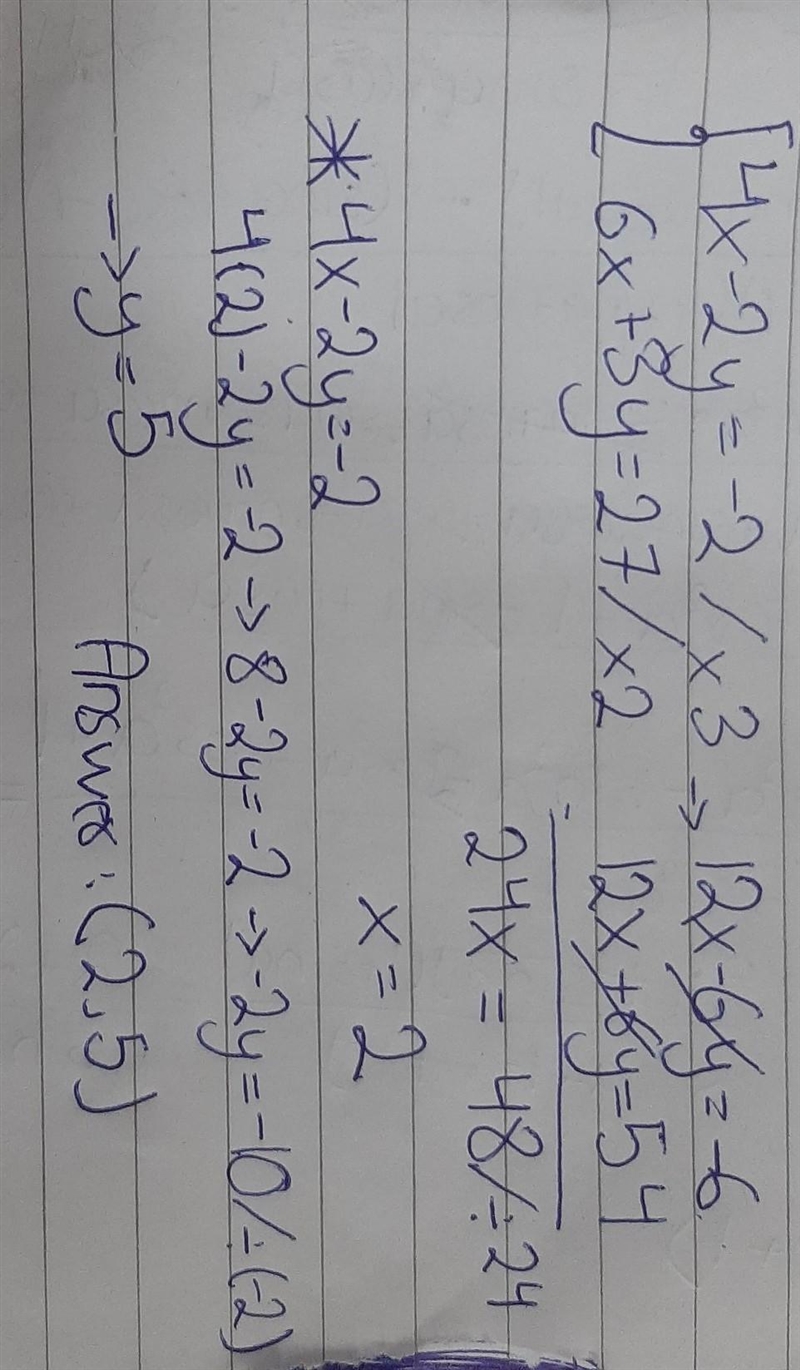 4x-2y=-2/x3 → 12x-6y=-6
6x+3y=27/x2 12x+6y=54
24x = 48/÷24
x=2
* 4x-2y=-2
4(2)-2y=-2→8-2y=-2→-2y=-10/÷(-2)
→y=5 Answer: (2,5)